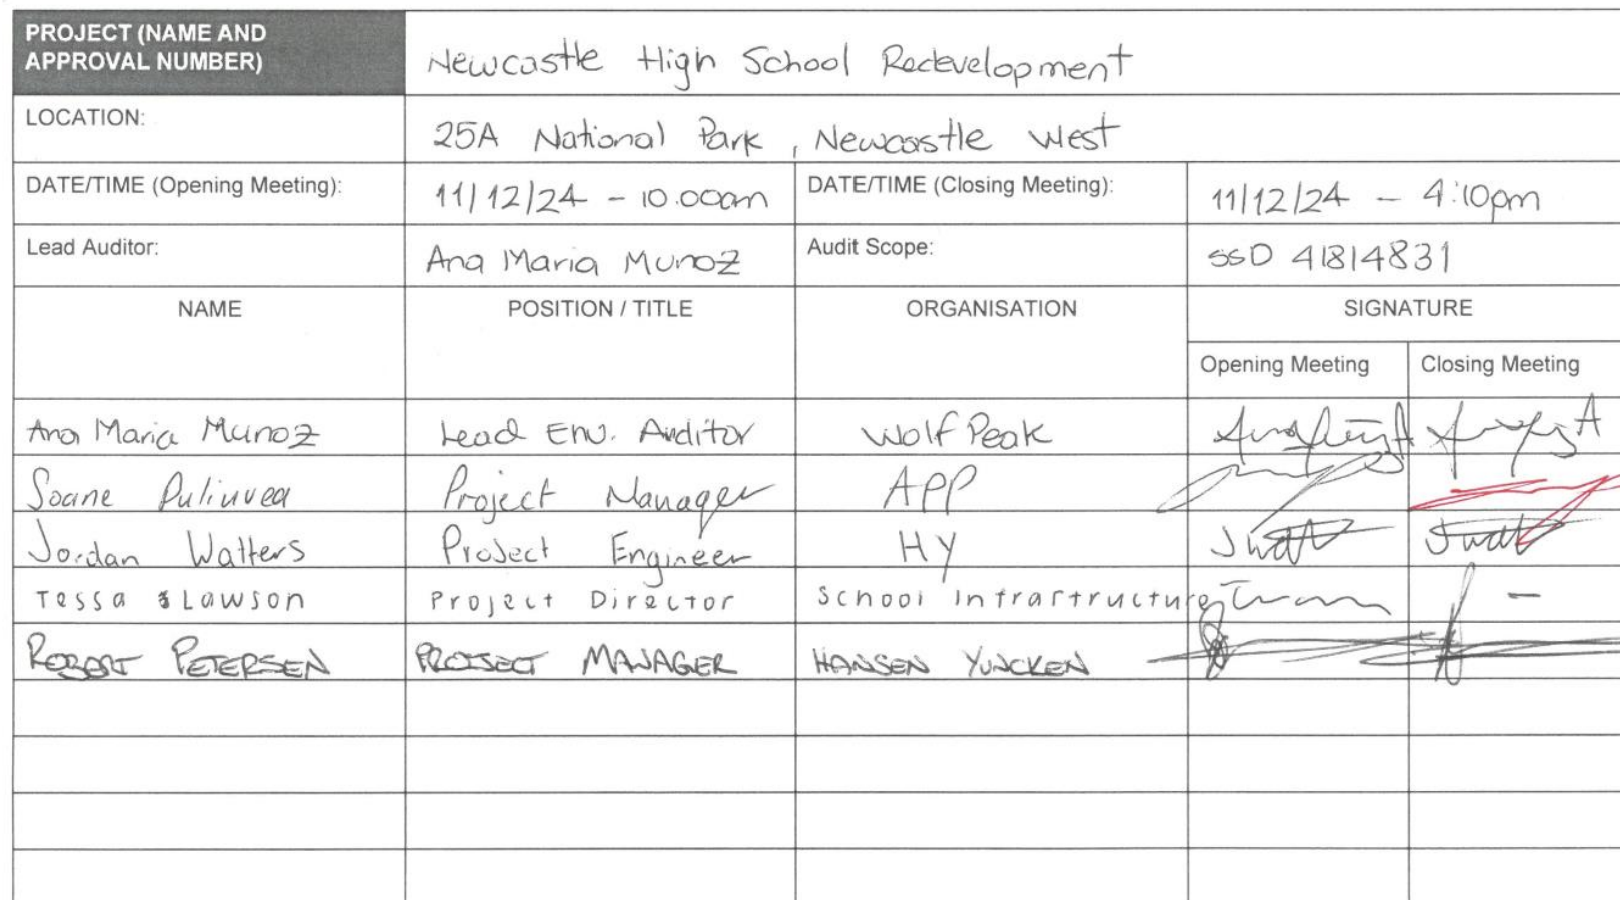 PROJECT (NAME AND
APPROVAL NUMBER)
Newcastle High School Redevelopment
LOCATION:
25A National Park, Newcastle West
DATE/TIME (Opening Meeting):
11/12/24 - 10.00am
DATE/TIME (Closing Meeting):
11/12/24 - 4:10pm
Lead Auditor:
Ana Maria Munoz
Audit Scope:
SSD 41814831
NAME
POSITION / TITLE
ORGANISATION
SIGNATURE
Opening Meeting
Closing Meeting
Ana Maria Munoz Lead Env. Auditor Wolf Peak
Soane Pulinuvea Project Manager APP
Jordan Watters Project Engineer HY
Tessa Lawson Project Director School Infrastructure -
ROBERT PETERSEN PROJECT MANAGER HANSEN YUNCKEN